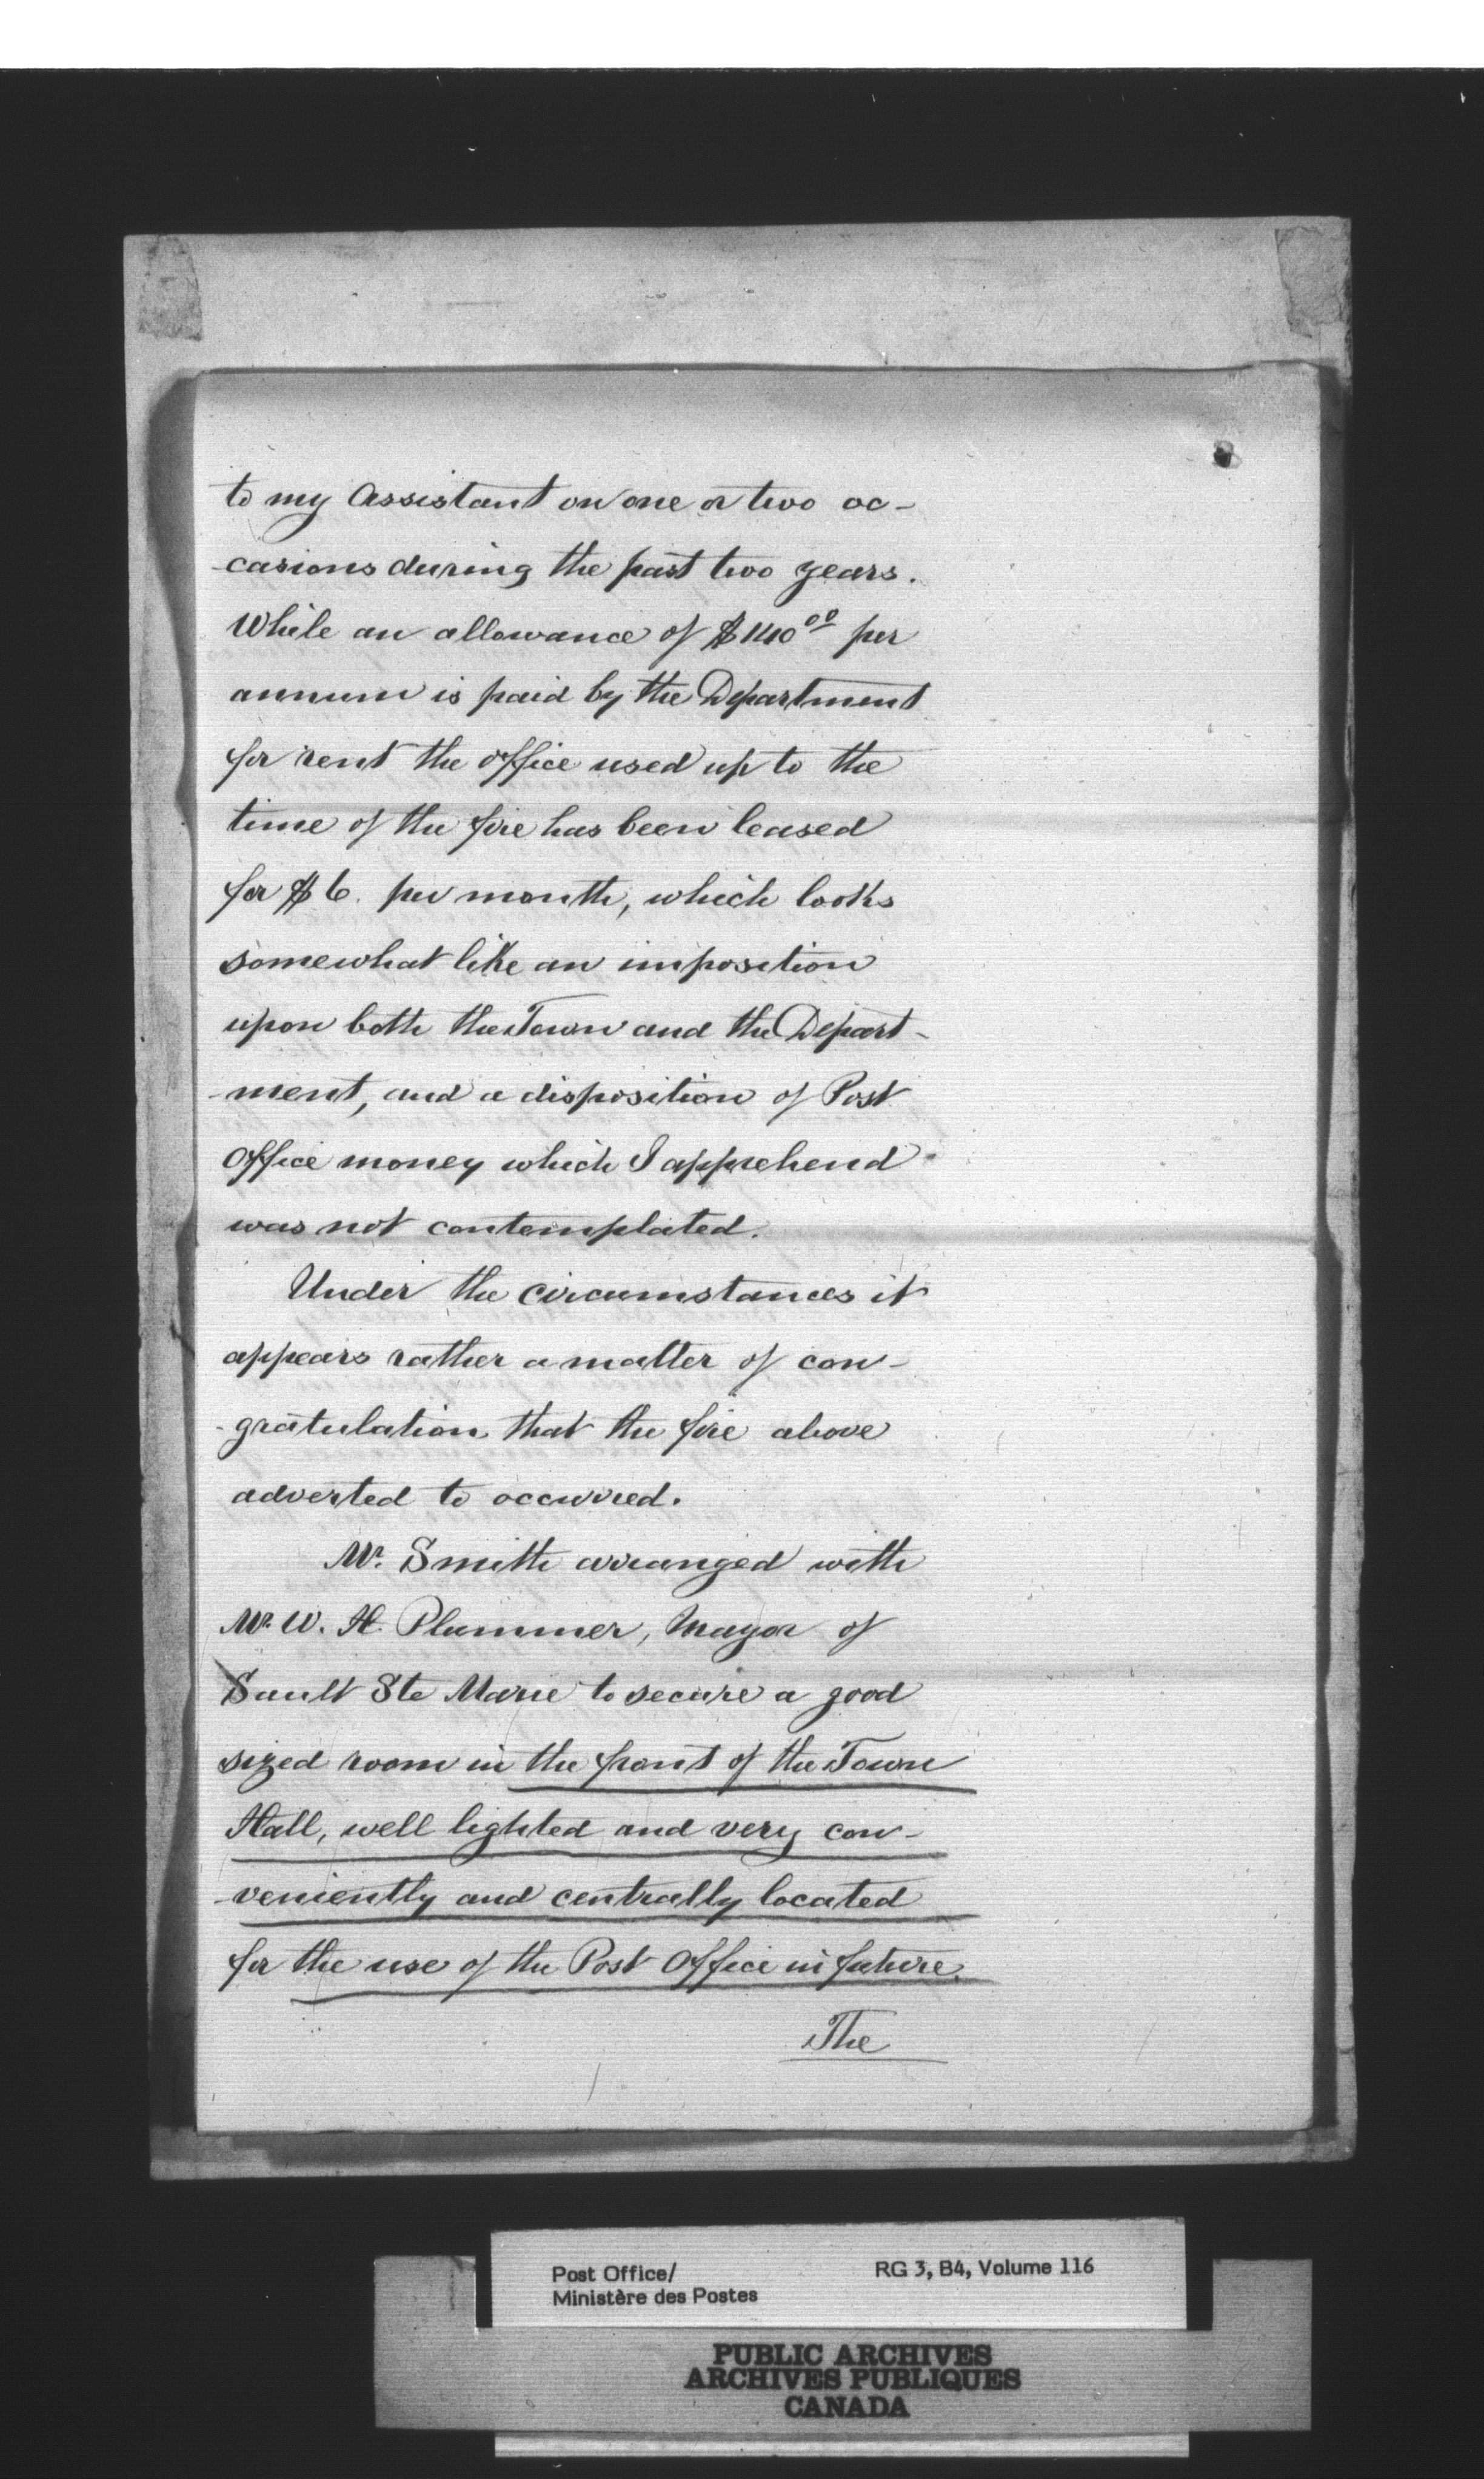 to my Assistant on one or two oc-
-casions during the past two years.
While an allowance of $140⁰⁰ per
annum is paid by the Department
for rent the office used up to the
time of the fire has been leased
for $6. per month, which looks
somewhat like an imposition
upon both the Town and the Depart-
-ment, and a disposition of Post
Office money which I apprehend
was not contemplated.
Under the circumstances it
appears rather a matter of con-
-gratulation that the fire above
adverted to occurred.
Mr. Smith arranged with
Mr. W. H. Plummer, Mayor of
Sault Ste Marie to secure a good
sized room in the front of the Town
Hall, well lighted and very con-
-veniently and centrally located
for the use of the Post Office in future.
The
Post Office/ RG 3, B4, Volume 116
Ministère des Postes
PUBLIC ARCHIVES
ARCHIVES PUBLIQUES
CANADA